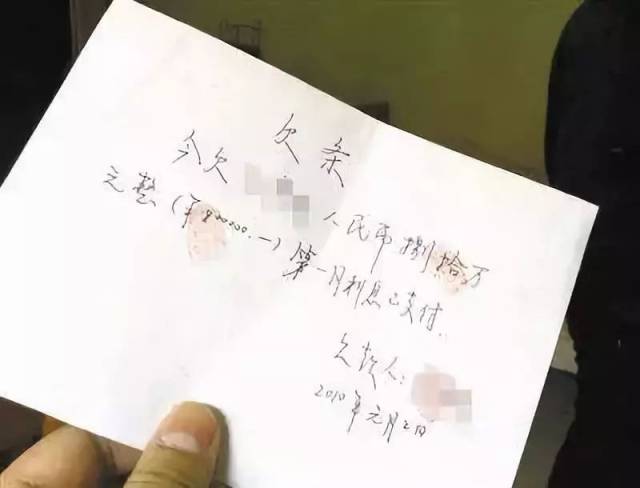 欠条
今欠 人民币捌拾万
元整(¥800000.一)第一月利息已支付.
欠款人:
2010年元月2日